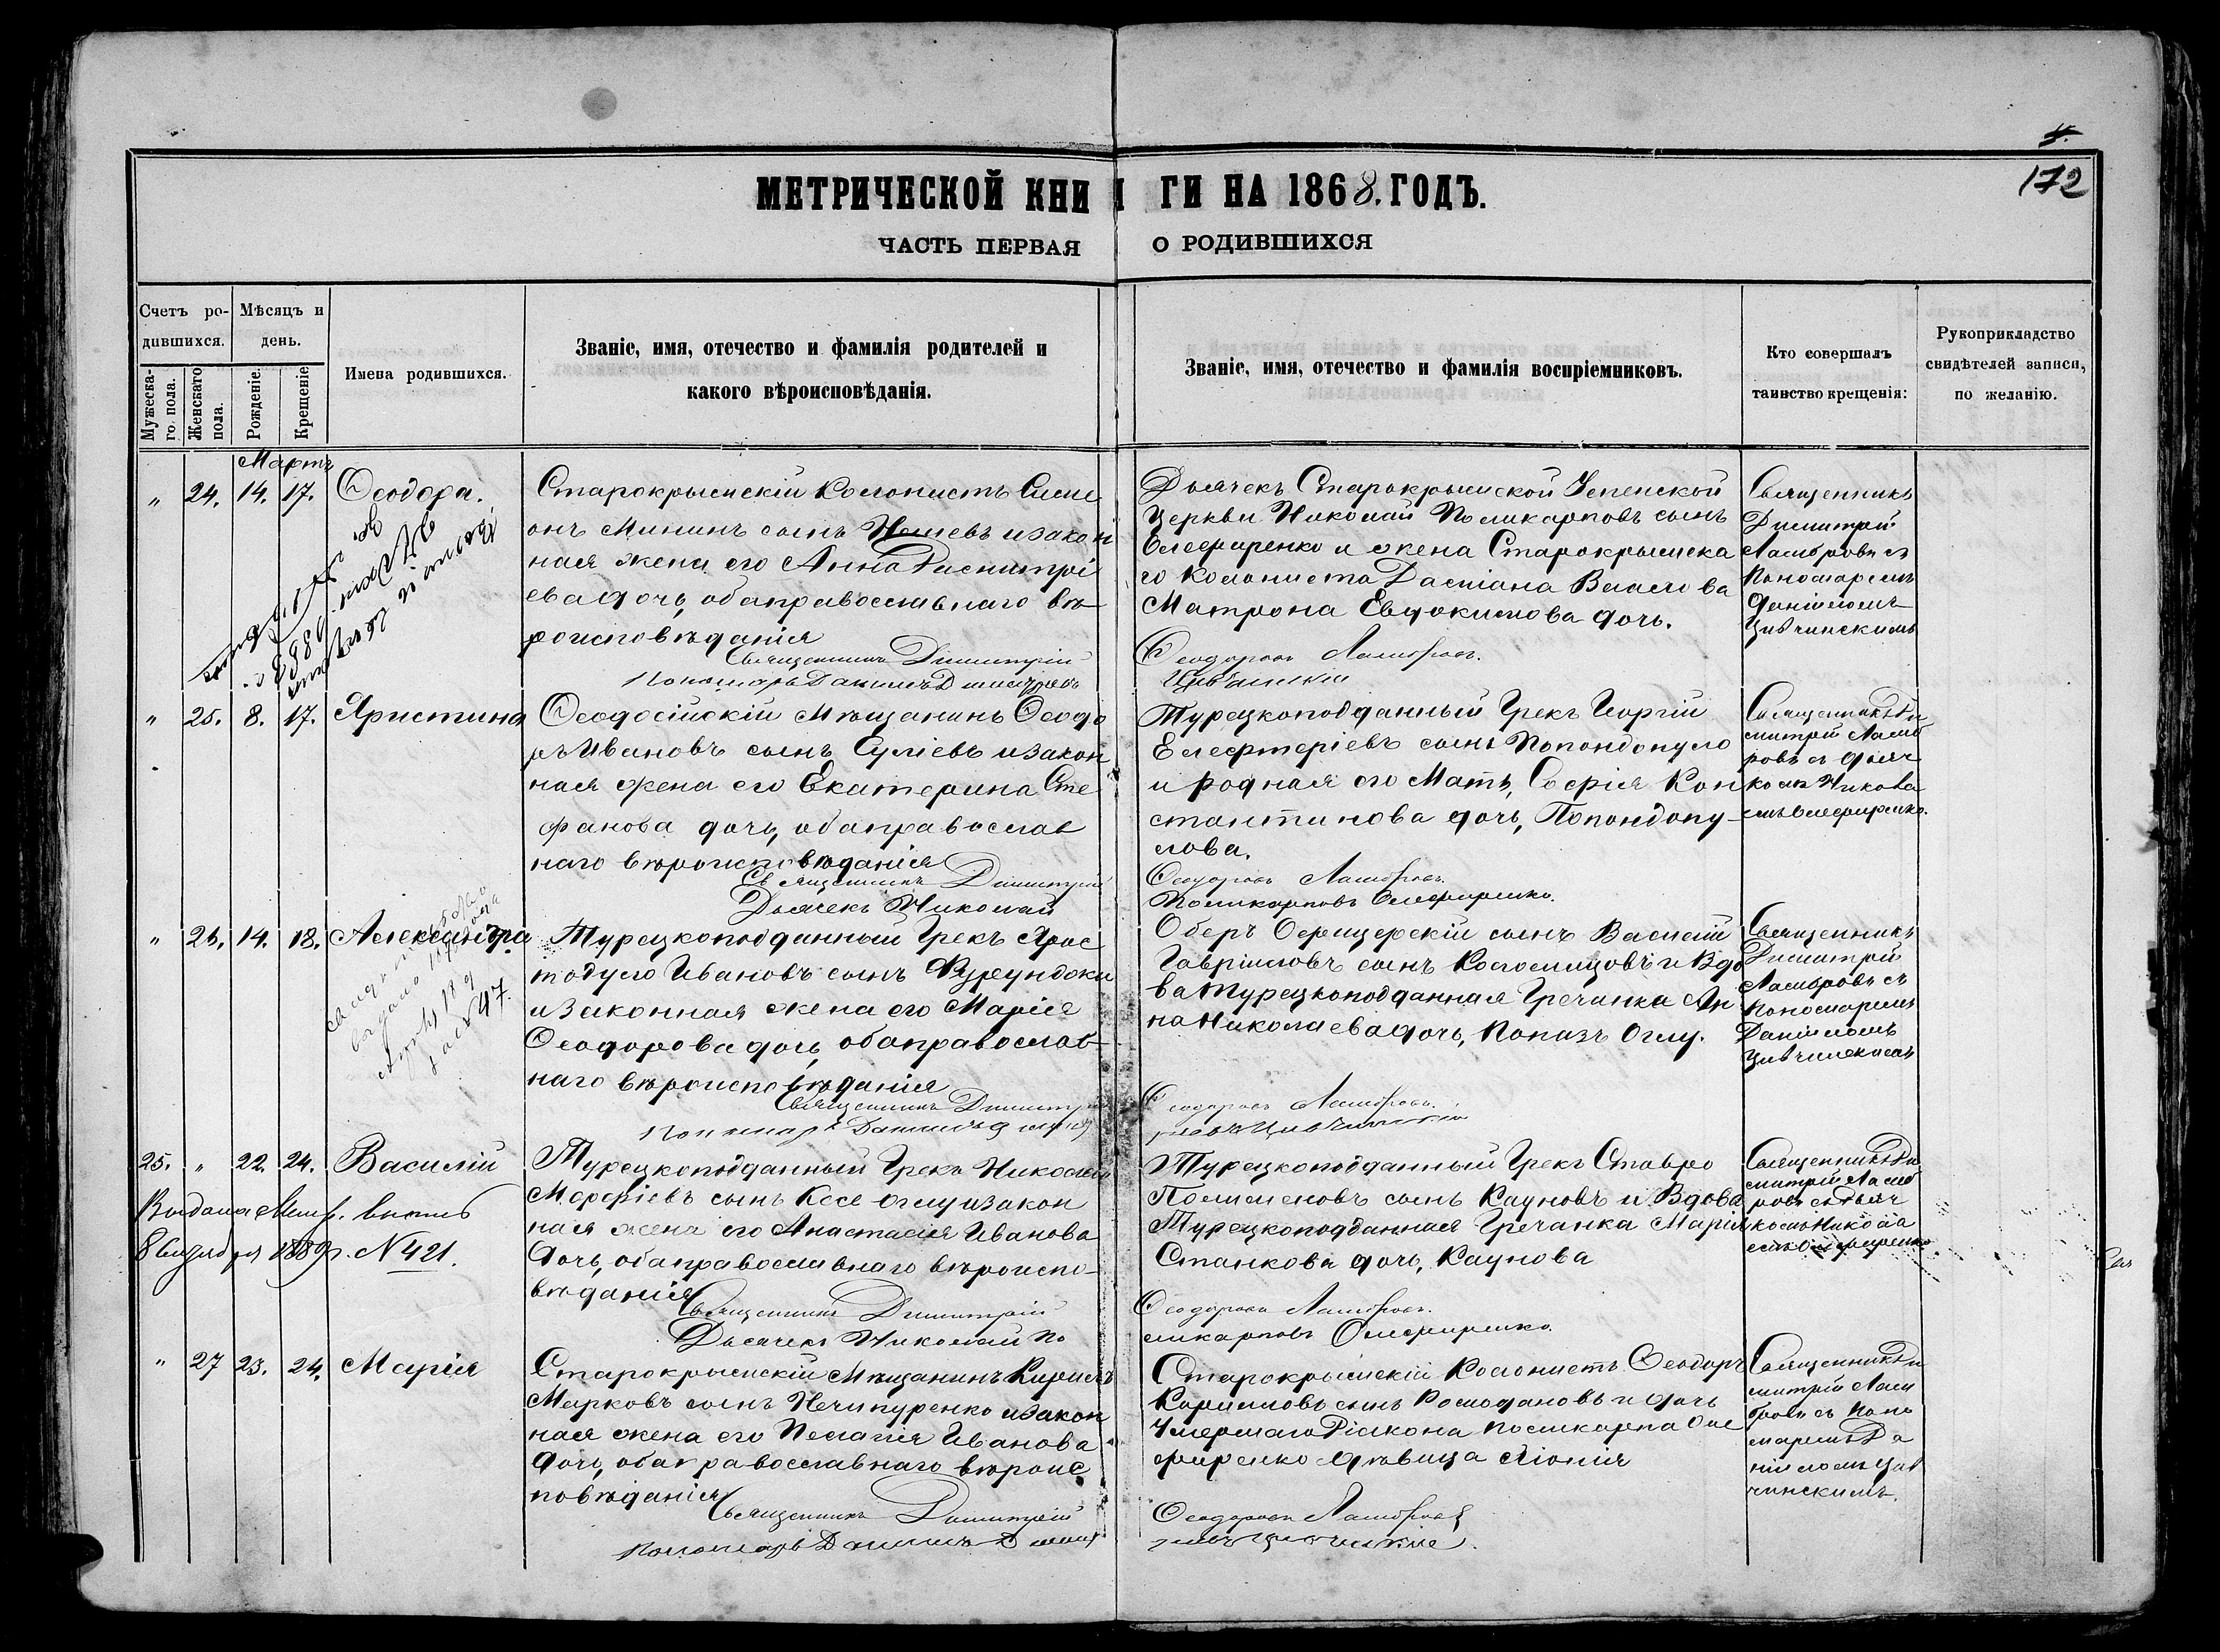 172
МЕТРИЧЕСКОЙ КНИГИ НА 1868. ГОДЪ.
ЧАСТЬ ПЕРВАЯ О РОДИВШИХСЯ
Счетъ родившихся.
Мѣсяцъ и день.
Мужескаго. пола.
Женскаго пола.
Рожденіе.
Крещеніе
Имена родившихся.
Званіе, имя, отечество и фамилія родителей и
какого вѣроисповѣданія.
Званіе, имя, отечество и фамилія воспріемниковъ.
Кто совершалъ
таинство крещенія:
Рукоприкладство
свидѣтелей записи,
по желанію.
Мартъ
" 24. 14. 17. Ѳеодора.
Старокрымскій Колонистъ Симе
онъ Мининъ сынъ Нешевъ и закон
ная жена его Анна Димитрі
ева дочь, оба православнаго вѣ-
роисповѣданія
Священникъ Димитрій
Пономарь Даніилъ
Дьячекъ Старокрымской Успенской
Церкви Николай Поликарповъ сынъ
Олефиренко и жена Старокрымска
го Колониста Даміана Власова
Матрона Евдокимова дочь.
Ѳеодоровъ Ламбровъ.
Цивчинскій
Священникъ
Димитрій
Ламбровъ съ
Пономаремъ
Даніиломъ
Цивчинскимъ
" 25. 8. 17. Христина
Ѳеодосійскій Мѣщанинъ Ѳеодо
ръ Ивановъ сынъ Суліевъ и закон
ная жена его Екатерина Сте
фанова дочь, оба православ
наго вѣроисповѣданія
Священникъ Димитрій
Дьячекъ Николай
Турецкоподданный Грекъ Георгій
Елефтеріевъ сынъ Попондопуло
и родная его Мать, Софія Кон
стантинова дочь, Попондопу-
лова.
Ѳеодоровъ Ламбровъ.
Поликарповъ Олефиренко.
Священникъ Ди
митрій Ламб
ровъ съ дьяч
комъ Никола
емъ Олефиренко.
" 26. 14. 18. Александра
Турецкоподданный Грекъ Хрис
тодуло Ивановъ сынъ
и законная жена его Марія
Ѳеодорова дочь, оба православ-
наго вѣроисповѣданія
Священникъ Димитрій
Пономарь Даніилъ
Оберъ Офицерскій сынъ Василій
Гавріиловъ сынъ Коломийцовъ и Вдо
ва Турецкоподданная Гречанка Ан
на Николаева дочь, Попазъ Оглу.
Ѳеодоровъ Ламбровъ.
Цивчинскій
Священникъ
Димитрій
Ламбровъ съ
Пономаремъ
Даніиломъ
Цивчинскимъ
№ 47.
25. " 22. 24. Василій
Турецкоподданный Грекъ Николай
сынъ Кесе оглу и закон
ная жена его Анастасія Иванова
дочь, оба православнаго вѣроиспо-
вѣданія
Священникъ Димитрій
Дьячекъ Николай По
Турецкоподданный Грекъ Ставро
сынъ Кауновъ и Вдова
Турецкоподданная Гречанка Марія
Станкова дочь, Каунова
Ѳеодоровъ Ламбровъ.
ликарповъ Олефиренко.
Священникъ Ди
митрій Ламб
ровъ съ Дьяч
комъ Никола
емъ Олефиренко
Выдана Метр. выпись
8 1889 г. № 421.
" 27 23. 24. Марія
Старокрымскій Мѣщанинъ Кирилъ
Марковъ сынъ Нечипуренко и закон
ная жена его Пелагія Иванова
дочь, оба православнаго вѣроис
повѣданія
Священникъ Димитрій
Пономарь Даніилъ
Старокрымскій Колонистъ Ѳеодоръ
Кириловъ сынъ и дочь
Умершаго Діакона Поликарпа Оле
фиренко дѣвица
Ѳеодоровъ Ламбровъ
Цивчинскій.
Священникъ Ди
митрій Лам
бровъ съ Поно
маремъ Да
ніиломъ Цив
чинскимъ.